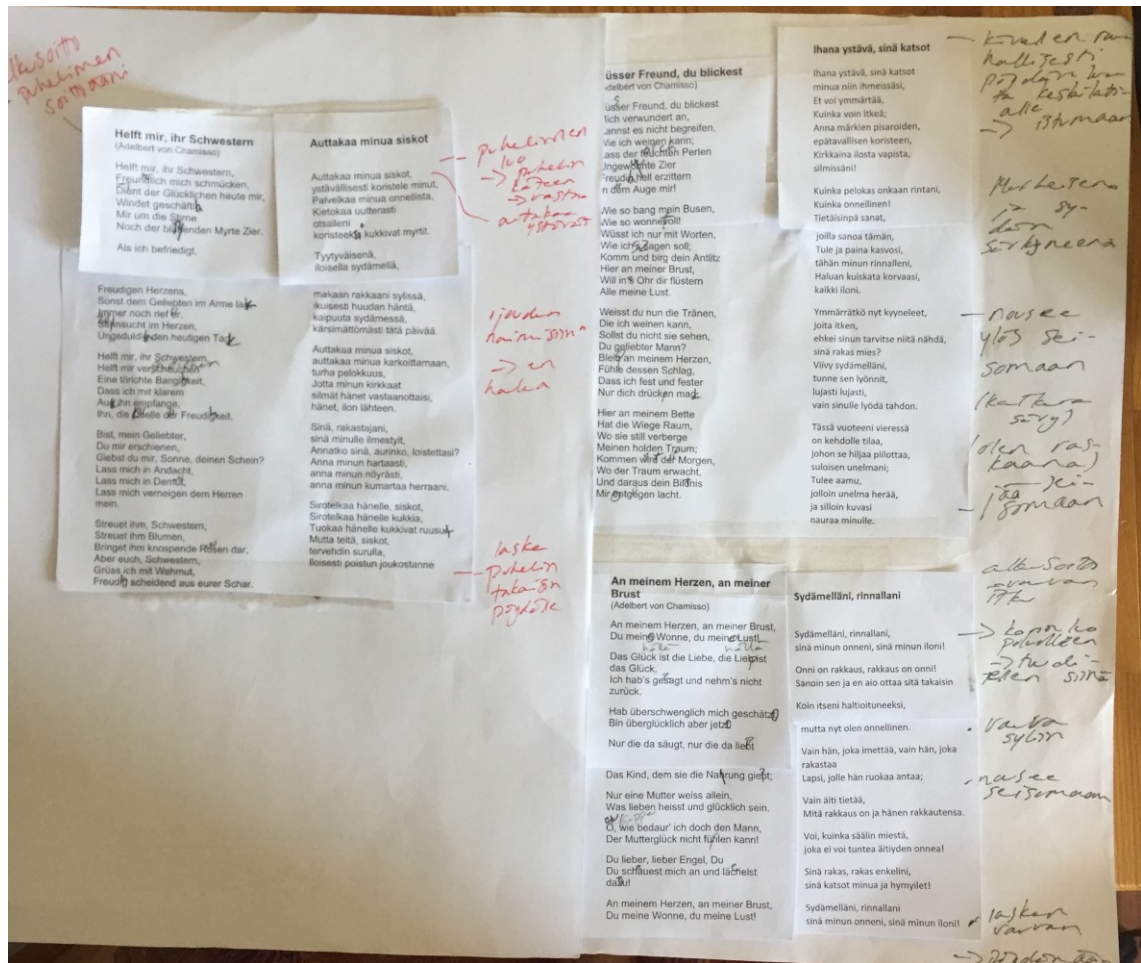 Helft mir, ihr Schwestern
(Adelbert von Chamisso)
Helft mir, ihr Schwestern,
Freundlich mich schmücken,
Dient der Glücklichen heute mir,
Windet geschäftig
Mir um die Stirne
Noch der blühenden Myrte Zier.
Als ich befriedigt,
Freudigen Herzens,
Sonst dem Geliebten im Arme lag,
Immer noch rief er,
Sehnsucht im Herzen,
Ungeduldig den heutigen Tag.
Helft mir, ihr Schwestern,
Helft mir verscheuchen
Eine törichte Bangigkeit,
Dass ich mit klarem
Aug ihn empfange,
Ihn, die Quelle der Freudigkeit.
Bist, mein Geliebter,
Du mir erschienen,
Giebst du mir, Sonne, deinen Schein?
Lass mich in Andacht,
Lass mich in Demut,
Lass mich verneigen dem Herren
mein.
Streuet ihm, Schwestern,
Streuet ihm Blumen,
Bringet ihm knospende Rosen dar,
Aber euch, Schwestern,
Grüss ich mit Wehmut,
Freudig scheidend aus eurer Schar.
Auttakaa minua siskot
Auttakaa minua siskot,
ystävällisesti koristele minut,
Palvelkaa minua onnellista,
Kietokaa uutterasti
otsalleni
koristeeksi kukkivat myrtit.
Tyytyväisenä,
iloisella sydämellä,
makaan rakkaani sylissä,
ikuisesti huudan häntä,
kaipuuta sydämessä,
kärsimättömästi tätä päivää.
Auttakaa minua siskot,
auttakaa minua karkoittamaan,
turha pelokkuus,
Jotta minun kirkkaat
silmät hänet vastaanottaisi,
hänet, ilon lähteen.
Sinä, rakastajani,
sinä minulle ilmestyit,
Annatko sinä, aurinko, loistettasi?
Anna minun hartaasti,
anna minun nöyrästi,
anna minun kumartaa herraani.
Sirotelkaa hänelle, siskot,
Sirotelkaa hänelle kukkia,
Tuokaa hänelle kukkivat ruusut
Mutta teitä, siskot,
tervehdin surulla,
Iloisesti poistun joukostanne
puhelimen
soittoääni
puhelimen
luo
→ puhelin
käteen
→ vastaa
→ en
halua
laske
puhelin
takaisin
pöydälle
üsser Freund, du blickest
delbert von Chamisso)
üsser Freund, du blickest
lich verwundert an,
annst es nicht begreifen,
Vie ich weinen kann;
ass der feuchten Perlen
Ungewohnte Zier
Freudig hell erzittern
n dem Auge mir!
Wie so bang mein Busen,
Wie so wonnevoll!
Wüsst ich nur mit Worten,
Wie ich's sagen soll;
Komm und birg dein Antlitz
Hier an meiner Brust,
Will in's Ohr dir flüstern
Alle meine Lust.
Weisst du nun die Tränen,
Die ich weinen kann,
Sollst du nicht sie sehen,
Du geliebter Mann?
Bleib an meinem Herzen,
Fühle dessen Schlag,
Dass ich fest und fester
Nur dich drücken mag.
Hier an meinem Bette
Hat die Wiege Raum,
Wo sie still verberge
Meinen holden Traum;
Kommen wird der Morgen,
Wo der Traum erwacht,
Und daraus dein Bildnis
Mir entgegen lacht.
Ihana ystävä, sinä katsot
Ihana ystävä, sinä katsot
minua niin ihmeissäsi,
Et voi ymmärtää,
Kuinka voin itkeä;
Anna märkien pisaroiden,
epätavallisen koristeen,
Kirkkaina ilosta vapista,
silmissäni!
Kuinka pelokas onkaan rintani,
Kuinka onnellinen!
Tietäisinpä sanat,
joilla sanoa tämän,
Tule ja paina kasvosi,
tähän minun rinnalleni,
Haluan kuiskata korvaasi,
kaikki iloni.
Ymmärrätkö nyt kyyneleet,
joita itken,
ehkei sinun tarvitse niitä nähdä,
sinä rakas mies?
Viivy sydämelläni,
tunne sen lyönnit,
lujasti lujasti,
vain sinulle lyödä tahdon.
Tässä vuoteeni vieressä
on kehdolle tilaa,
johon se hiljaa piilottaa,
suloisen unelmani;
Tulee aamu,
jolloin unelma herää,
ja silloin kuvasi
nauraa minulle.
→ istumaan
särkyneenä
nousee
ylös sei-
somaan
(olen ras-
kaana)
jää sei-
somaan
An meinem Herzen, an meiner
Brust
(Adelbert von Chamisso)
An meinem Herzen, an meiner Brust,
Du meine Wonne, du meine Lust!
Das Glück ist die Liebe, die Lieb ist
das Glück,
Ich hab's gesagt und nehm's nicht
zurück.
Hab überschwenglich mich geschätzt
Bin überglücklich aber jetzt
Nur die da säugt, nur die da liebt
Das Kind, dem sie die Nahrung giebt;
Nur eine Mutter weiss allein,
Was lieben heisst und glücklich sein.
O, wie bedaur' ich doch den Mann,
Der Mutterglück nicht fühlen kann!
Du lieber, lieber Engel, Du
Du schauest mich an und lächelst
dazu!
An meinem Herzen, an meiner Brust,
Du meine Wonne, du meine Lust!
Sydämelläni, rinnallani
Sydämelläni, rinnallani,
sinä minun onneni, sinä minun iloni!
Onni on rakkaus, rakkaus on onni!
Sanoin sen ja en aio ottaa sitä takaisin
Koin itseni haltioituneeksi,
mutta nyt olen onnellinen.
Vain hän, joka imettää, vain hän, joka
rakastaa
Lapsi, jolle hän ruokaa antaa;
Vain äiti tietää,
Mitä rakkaus on ja hänen rakkautensa.
Voi, kuinka säälin miestä,
joka ei voi tuntea äitiyden onnea!
Sinä rakas, rakas enkelini,
sinä katsot minua ja hymyilet!
Sydämelläni, rinnallani
sinä minun onneni, sinä minun iloni!
alkusoitto
vauvan
itku
vauva
syliin
nousee
seisomaan
lasken
vauvan